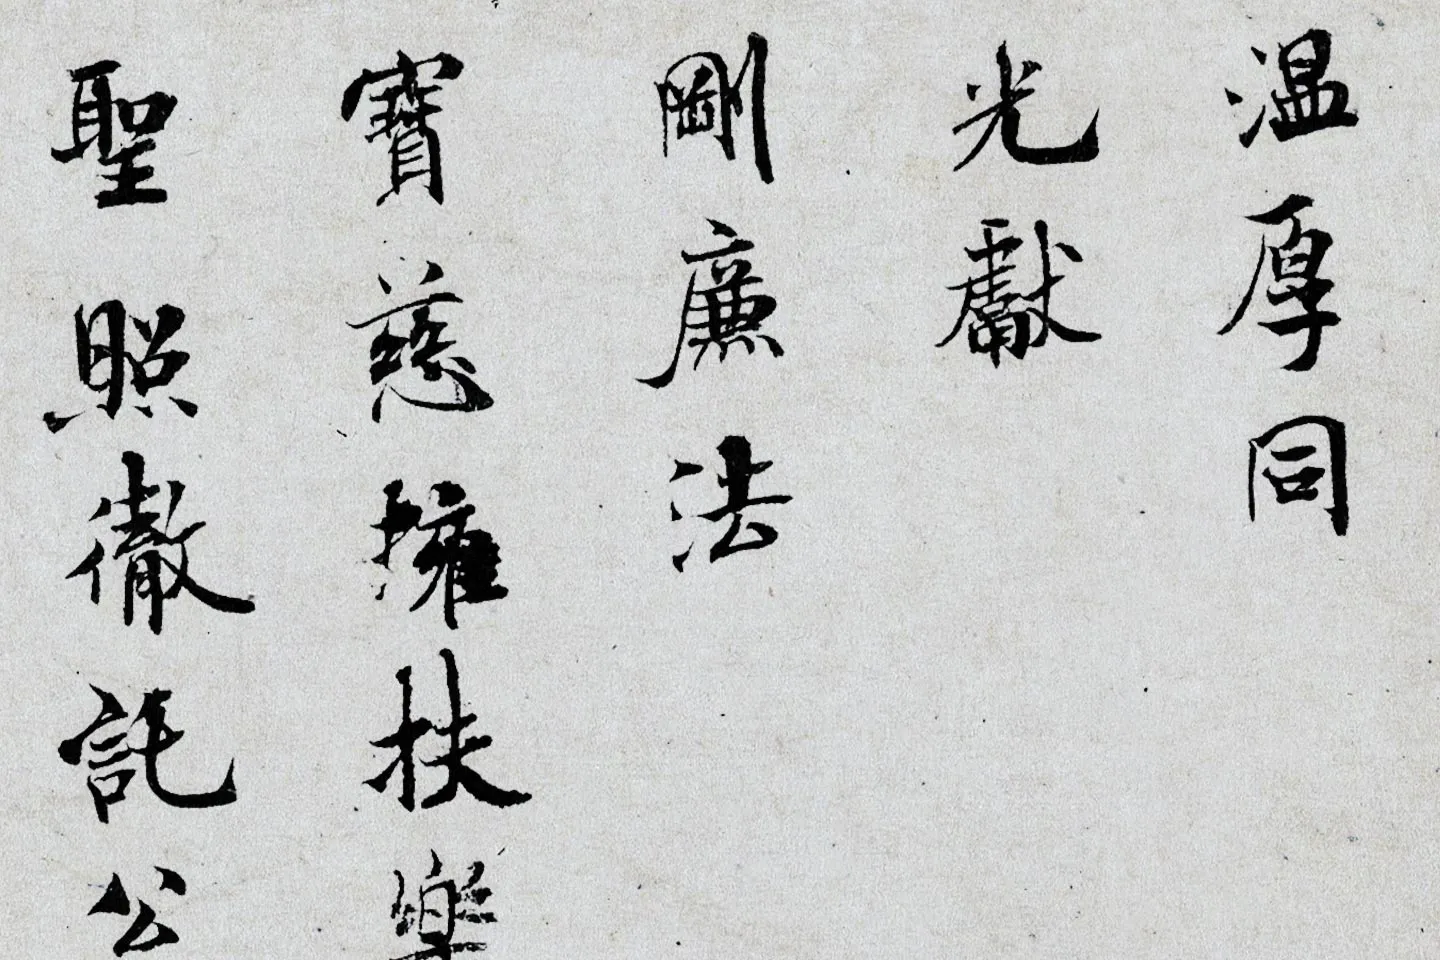 温厚同
光獻
剛廉法
寶慈擁扶樂
聖照徹託公